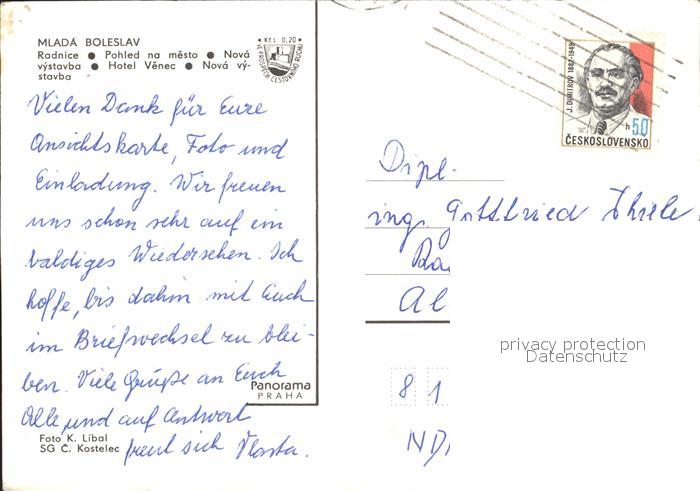 MLADÁ BOLESLAV
Radnice ● Pohled na město ● Nová
výstavba ● Hotel Věnec ● Nová vý-
stavba
Kčs 0,20
VE PROSPĚCH CESTOVNÍHO RUCHU
Vielen Dank für Eure
Ansichtskarte, Foto und
Einladung. Wir freuen
uns schon sehr auf ein
baldiges Wiedersehen. Ich
hoffe, bis dahin mit Euch
im Briefwechsel zu blei-
ben. Viele Grüße an Euch
Alle und auf Antwort
freut sich Vlasta.
Panorama
PRAHA
Foto K. Líbal
SG Č. Kostelec
J. DIMITROV 1882-1949
h 50
ČESKOSLOVENSKO
Dipl.
ing. Gottfried Thiele
Al
privacy protection
Datenschutz
8 1